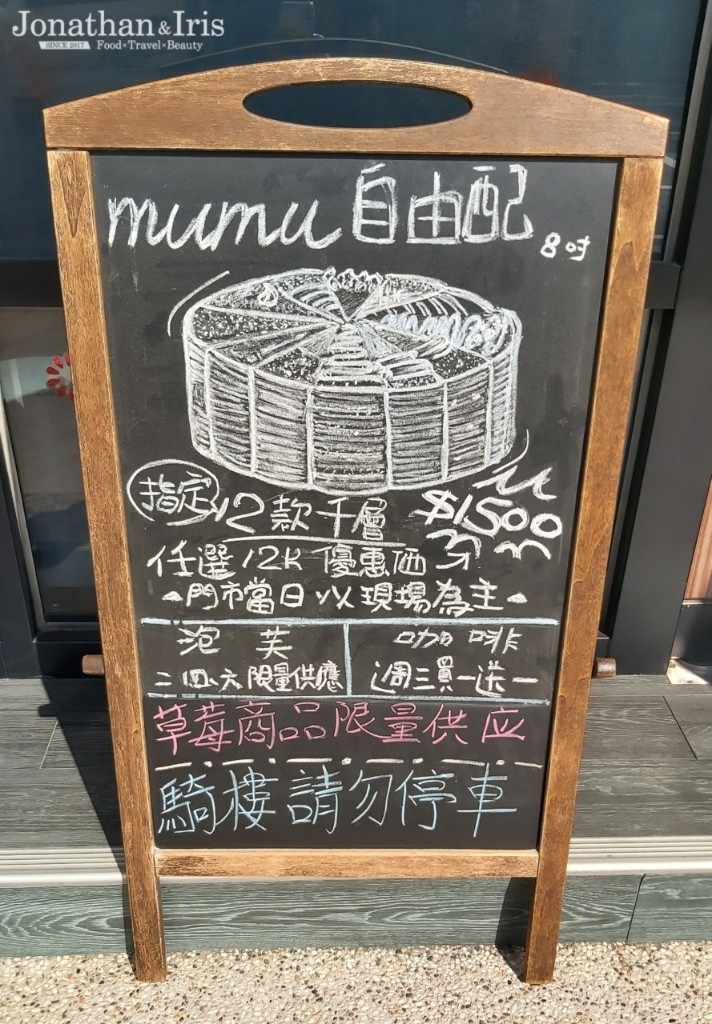 Jonathan & Iris
SINCE 2017 Food•Travel•Beauty
mumu 自由配 8吋
指定 12款千層 $1500
任選12K 優惠価
門市當日以現場為主
泡芙
三、四、六 限量供應
咖啡
週三買一送一
草莓商品限量供应
騎樓請勿停車